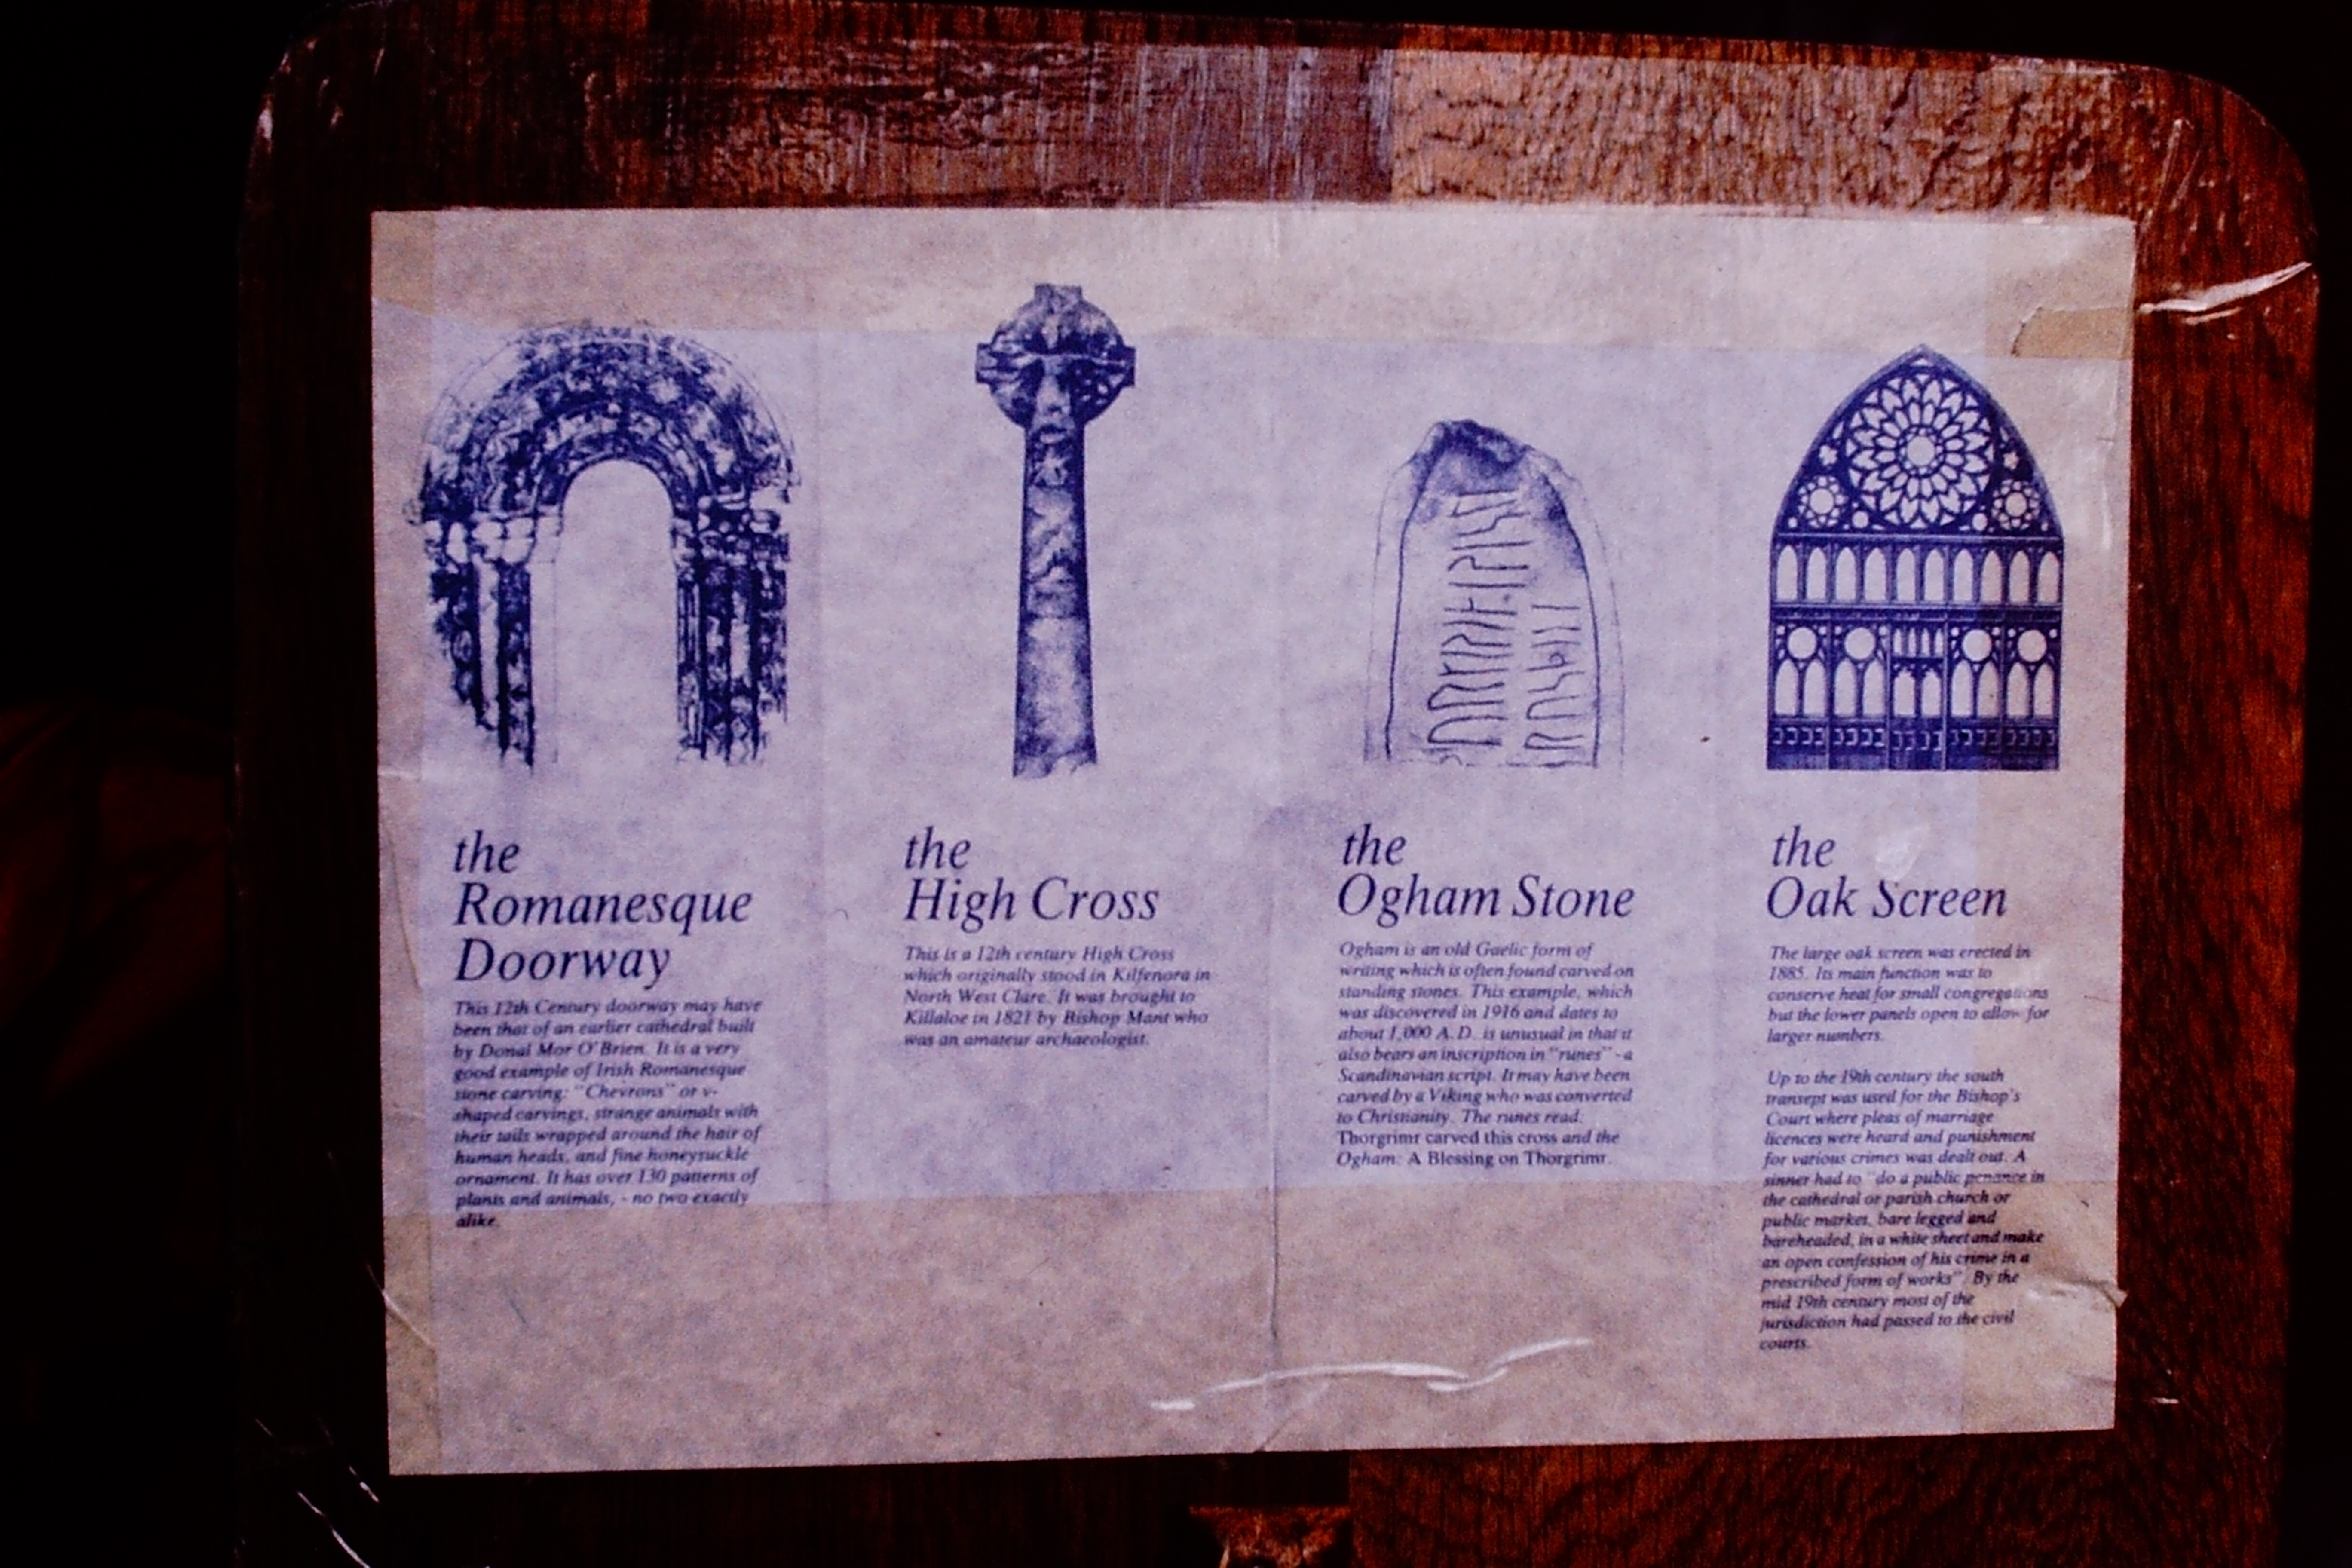 the
Romanesque
Doorway
This 12th Century doorway may have
been that of an earlier cathedral built
by Donal Mor O'Brien. It is a very
good example of Irish Romanesque
stone carving: "Chevrons" or v-
shaped carvings, strange animals with
their tails wrapped around the hair of
human heads, and fine honeysuckle
ornament. It has over 130 patterns of
plants and animals, - no two exactly
alike.
the
High Cross
This is a 12th century High Cross
which originally stood in Kilfenora in
North West Clare. It was brought to
Killaloe in 1821 by Bishop Mant who
was an amateur archaeologist.
the
Ogham Stone
Ogham is an old Gaelic form of
writing which is often found carved on
standing stones. This example, which
was discovered in 1916 and dates to
about 1,000 A.D. is unusual in that it
also bears an inscription in "runes" - a
Scandinavian script. It may have been
carved by a Viking who was converted
to Christianity. The runes read:
Thorgrimr carved this cross and the
Ogham: A Blessing on Thorgrimr.
the
Oak Screen
The large oak screen was erected in
1885. Its main function was to
conserve heat for small congregations
but the lower panels open to allow for
larger numbers.
Up to the 19th century the south
transept was used for the Bishop's
Court where pleas of marriage
licences were heard and punishment
for various crimes was dealt out. A
sinner had to "do a public penance in
the cathedral or parish church or
public market, bare legged and
bareheaded, in a white sheet and make
an open confession of his crime in a
prescribed form of works". By the
mid 19th century most of the
jurisdiction had passed to the civil
courts.